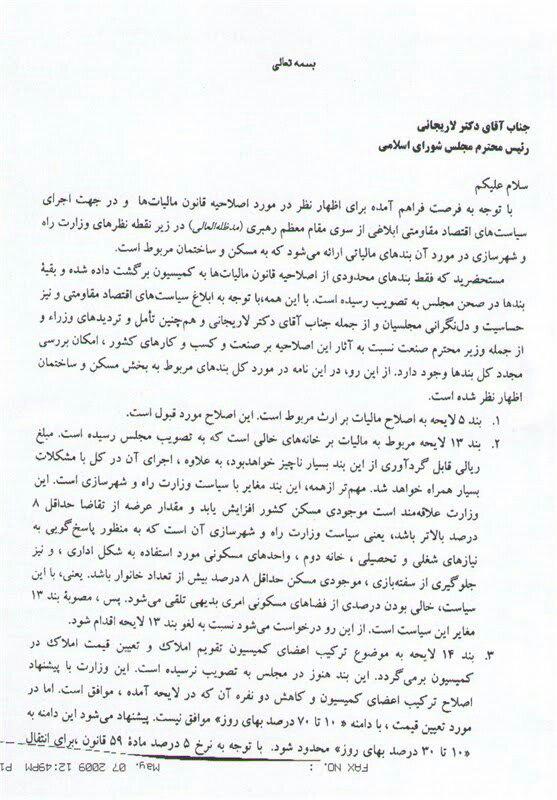 بسمه تعالی
جناب آقای دکتر لاریجانی
رئیس محترم مجلس شورای اسلامی
سلام علیکم
با توجه به فرصت فراهم آمده برای اظهار نظر در مورد اصلاحیه قانون مالیات‌ها و در جهت اجرای
سیاست‌های اقتصاد مقاومتی ابلاغی از سوی مقام معظم رهبری (مدظله‌العالی) در زیر نقطه نظرهای وزارت راه
و شهرسازی در مورد آن بندهای مالیاتی ارائه می‌شود که به مسکن و ساختمان مربوط است.
مستحضرید که فقط بندهای محدودی از اصلاحیه قانون مالیات‌ها به کمیسیون برگشت داده شده و بقیۀ
بندها در صحن مجلس به تصویب رسیده است. با این همه،با توجه به ابلاغ سیاست‌های اقتصاد مقاومتی و نیز
حساسیت و دل‌نگرانی مجلسیان و از جمله جناب آقای دکتر لاریجانی و هم‌چنین تأمل و تردیدهای وزراء و
از جمله وزیر محترم صنعت نسبت به آثار این اصلاحیه بر صنعت و کسب و کارهای کشور ، امکان بررسی
مجدد کل بندها وجود دارد. از این رو، در این نامه در مورد کل بندهای مربوط به بخش مسکن و ساختمان
اظهار نظر شده است.
۱. بند ۵ لایحه به اصلاح مالیات بر ارث مربوط است. این اصلاح مورد قبول است.
۲. بند ۱۳ لایحه مربوط به مالیات بر خانه‌های خالی است که به تصویب مجلس رسیده است. مبلغ
ریالی قابل گردآوری از این بند بسیار ناچیز خواهدبود، به علاوه ، اجرای آن در کل با مشکلات
بسیار همراه خواهد شد. مهم‌تر ازهمه، این بند مغایر با سیاست وزارت راه و شهرسازی است. این
وزارت علاقه‌مند است موجودی مسکن کشور افزایش یابد و مقدار عرضه از تقاضا حداقل ۸
درصد بالاتر باشد، یعنی سیاست وزارت راه و شهرسازی آن است که به منظور پاسخ‌گویی به
نیازهای شغلی و تحصیلی ، خانه دوم ، واحدهای مسکونی مورد استفاده به شکل اداری ، و نیز
جلوگیری از سفته‌بازی ، موجودی مسکن حداقل ۸ درصد بیش از تعداد خانوار باشد. یعنی، با این
سیاست، خالی بودن درصدی از فضاهای مسکونی امری بدیهی تلقی می‌شود. پس ، مصوبۀ بند ۱۳
مغایر این سیاست است. از این رو درخواست می‌شود نسبت به لغو بند ۱۳ لایحه اقدام شود.
۳. بند ۱۴ لایحه به موضوع ترکیب اعضای کمیسیون تقویم املاک و تعیین قیمت املاک در
کمیسیون برمی‌گردد. این بند هنوز در مجلس به تصویب نرسیده است. این وزارت با پیشنهاد
اصلاح ترکیب اعضای کمیسیون و کاهش دو نفره آن که در لایحه آمده ، موافق است. اما در
مورد تعیین قیمت ، با دامنه « ۱۰ تا ۷۰ درصد بهای روز» موافق نیست. پیشنهاد می‌شود این دامنه به
«۱۰ تا ۳۰ درصد بهای روز» محدود شود. با توجه به نرخ ۵ درصد مادۀ ۵۹ قانون ،برای انتقال
FAX NO. : May. 07 2009 12:49PM P1